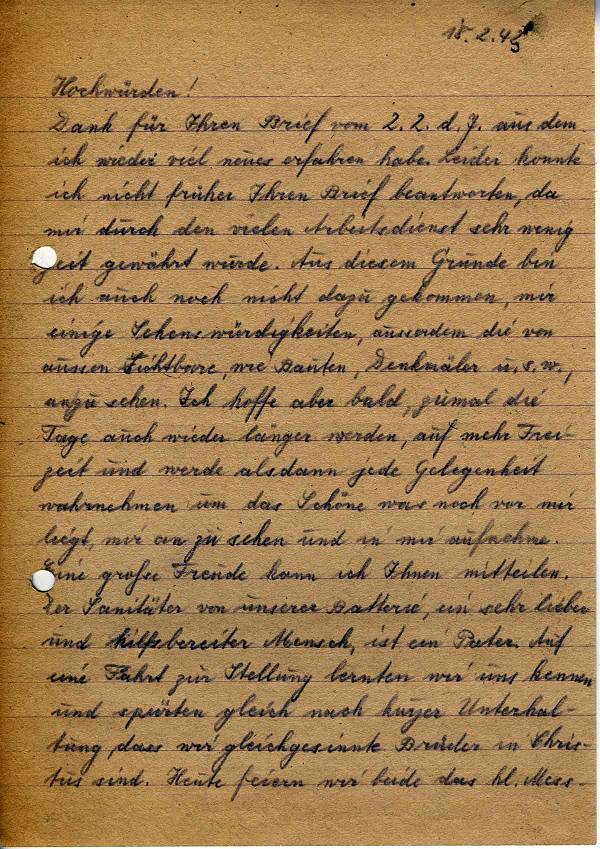 18.2.43
Hochwürden!
Dank für Ihren Brief vom 2.2. d. J. aus dem
ich wieder viel neues erfahren habe. Leider konnte
ich nicht früher Ihren Brief beantworten, da
mir durch den vielen Arbeitsdienst sehr wenig
Zeit gewährt wurde. Aus diesem Grunde bin
ich auch noch nicht dazu gekommen, mir
einige Sehenswürdigkeiten, ausserdem die von
aussen Sichtbare, wie Bauten, Denkmäler u.s.w.,
anzusehen. Ich hoffe aber bald, zumal die
Tage auch wieder länger werden, auf mehr Frei-
zeit und werde alsdann jede Gelegenheit
wahrnehmen um das Schöne was noch vor mir
liegt, mir an zu sehen und in mir aufnehme.
Eine grosse Freude kann ich Ihnen mitteilen.
Der Sanitäter von unserer Batterie, ein sehr lieber
und hilfsbereiter Mensch, ist ein Pater. Auf
eine Fahrt zur Stellung lernten wir uns kennen
und spürten gleich nach kurzer Unterhal-
tung, dass wir gleichgesinnte Brüder in Chris-
tus sind. Heute feiern wir beide das hl. Mess-